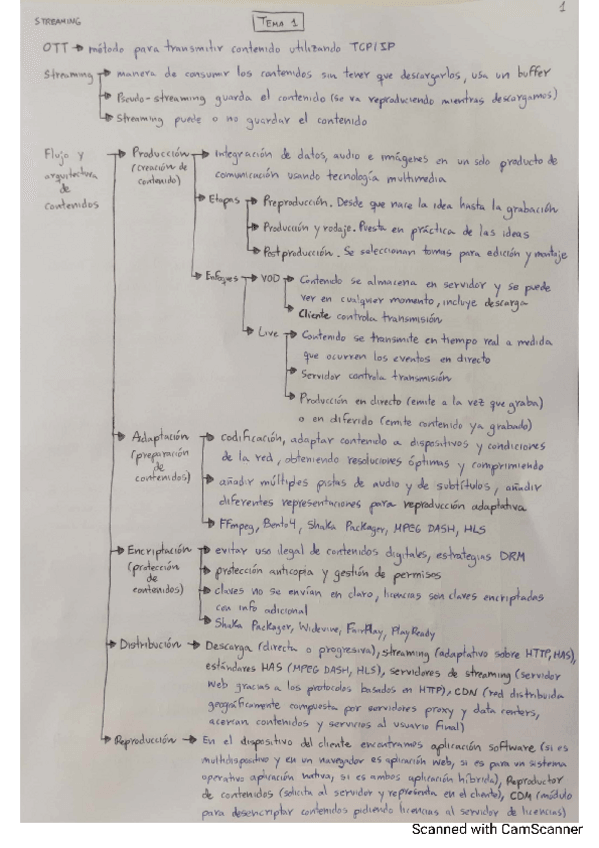 1
STREAMING
TEMA 1
OTT → método para transmitir contenido utilizando TCP/IP
Streaming → manera de consumir los contenidos sin tener que descargarlos, usa un buffer
→ Pseudo-streaming guarda el contenido (se va reproduciendo mientras descargamos)
→ Streaming puede o no guardar el contenido
Flujo y arquitectura de contenidos
→ Producción (creación de contenido) → Integración de datos, audio e imágenes en un solo producto de
comunicación usando tecnología multimedia
→ Etapas → Preproducción. Desde que nace la idea hasta la grabación
→ Producción y rodaje. Puesta en práctica de las ideas
→ Postproducción. Se seleccionan tomas para edición y montaje
→ Enfoques → VOD → Contenido se almacena en servidor y se puede
ver en cualquier momento, incluye descarga
→ Cliente controla transmisión
→ Live → Contenido se transmite en tiempo real a medida
que ocurren los eventos en directo
→ Servidor controla transmisión
→ Producción en directo (emite a la vez que graba)
o en diferido (emite contenido ya grabado)
→ Adaptación (preparación de contenidos) → codificación, adaptar contenido a dispositivos y condiciones
de la red, obteniendo resoluciones óptimas y comprimiendo
→ añadir múltiples pistas de audio y de subtítulos, añadir
diferentes representaciones para reproducción adaptativa
→ FFmpeg, Bento4, Shaka Packager, MPEG DASH, HLS
→ Encriptación (protección de contenidos) → evitar uso ilegal de contenidos digitales, estrategias DRM
→ protección anticopia y gestión de permisos
→ claves no se envían en claro, licencias son claves encriptadas
con info adicional
→ Shaka Packager, Widevine, FairPlay, PlayReady
→ Distribución → Descarga (directa o progresiva), streaming (adaptativo sobre HTTP, HAS),
estándares HAS (MPEG DASH, HLS), servidores de streaming (servidor
web gracias a los protocolos basados en HTTP), CDN (red distribuida
geográficamente compuesta por servidores proxy y data centers,
acercan contenidos y servicios al usuario final)
→ Reproducción → En el dispositivo del cliente encontramos aplicación software (si es
multidispositivo y en un navegador es aplicación web, si es para un sistema
operativo aplicación nativa, si es ambos aplicación híbrida), Reproductor
de contenidos (solicita al servidor y representa en el cliente), CDM (módulo
para desencriptar contenidos pidiendo licencias al servidor de licencias)
Scanned with CamScanner